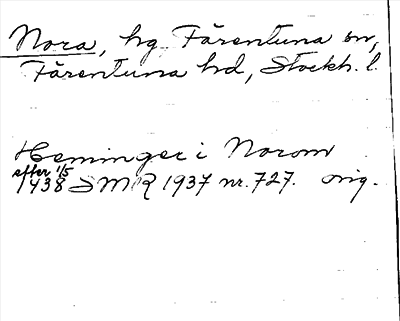 Nora, hg Färentuna sn,
Färentuna hd, Stockh. l.
Heminger i Norom
efter 1/5
1438 SMR 1937 nr. 727. orig.